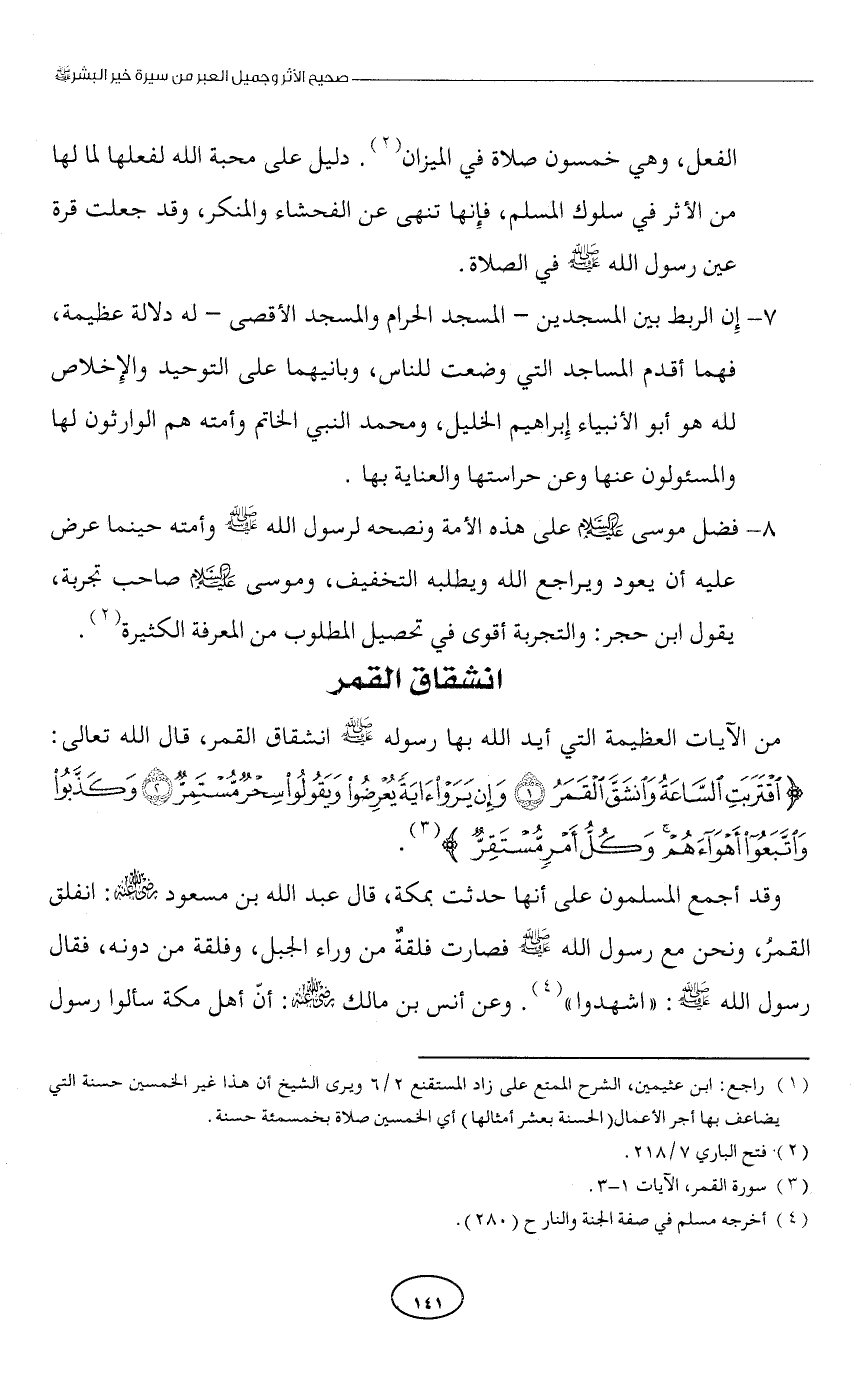 صحيح الأثر وجميل العبر من سيرة خير البشر ﷺ
الفعل، وهي خمسون صلاة في الميزان(٢). دليل على محبة الله لفعلها لما لها
من الأثر في سلوك المسلم، فإنها تنهى عن الفحشاء والمنكر، وقد جعلت قرة
عين رسول الله ﷺ في الصلاة.
٧- إن الربط بين المسجدين - المسجد الحرام والمسجد الأقصى - له دلالة عظيمة،
فهما أقدم المساجد التي وضعت للناس، وبانيهما على التوحيد والإخلاص
لله هو أبو الأنبياء إبراهيم الخليل، ومحمد النبي الخاتم وأمته هم الوارثون لها
والمسئولون عنها وعن حراستها والعناية بها .
٨- فضل موسى عليه السلام على هذه الأمة ونصحه لرسول الله ﷺ وأمته حينما عرض
عليه أن يعود ويراجع الله ويطلبه التخفيف، وموسى عليه السلام صاحب تجربة،
يقول ابن حجر: والتجربة أقوى في تحصيل المطلوب من المعرفة الكثيرة(٢).
انشقاق القمر
من الآيات العظيمة التي أيد الله بها رسوله ﷺ انشقاق القمر، قال الله تعالى:
﴿ ٱقْتَرَبَتِ ٱلسَّاعَةُ وَٱنشَقَّ ٱلْقَمَرُ ١ وَإِن يَرَوْا۟ ءَايَةً يُعْرِضُوا۟ وَيَقُولُوا۟ سِحْرٌ مُّسْتَمِرٌّ ٢ وَكَذَّبُوا۟
وَٱتَّبَعُوٓا۟ أَهْوَآءَهُمْ ۚ وَكُلُّ أَمْرٍ مُّسْتَقِرٌّ ﴾(٣).
وقد أجمع المسلمون على أنها حدثت بمكة، قال عبد الله بن مسعود رضي الله عنه: انفلق
القمرُ، ونحن مع رسول الله ﷺ فصارت فلقةٌ من وراء الجبل، وفلقة من دونه، فقال
رسول الله ﷺ: «اشهدوا»(٤). وعن أنس بن مالك رضي الله عنه: أنّ أهل مكة سألوا رسول
(١) راجع: ابن عثيمين، الشرح الممتع على زاد المستقنع ٦/٢ ويرى الشيخ أن هذا غير الخمسين حسنة التي
يضاعف بها أجر الأعمال (الحسنة بعشر أمثالها) أي الخمسين صلاة بخمسمئة حسنة.
(٢) فتح الباري ٢١٨/٧.
(٣) سورة القمر، الآيات ١-٣.
(٤) أخرجه مسلم في صفة الجنة والنار ح (٢٨٠).
١٤١